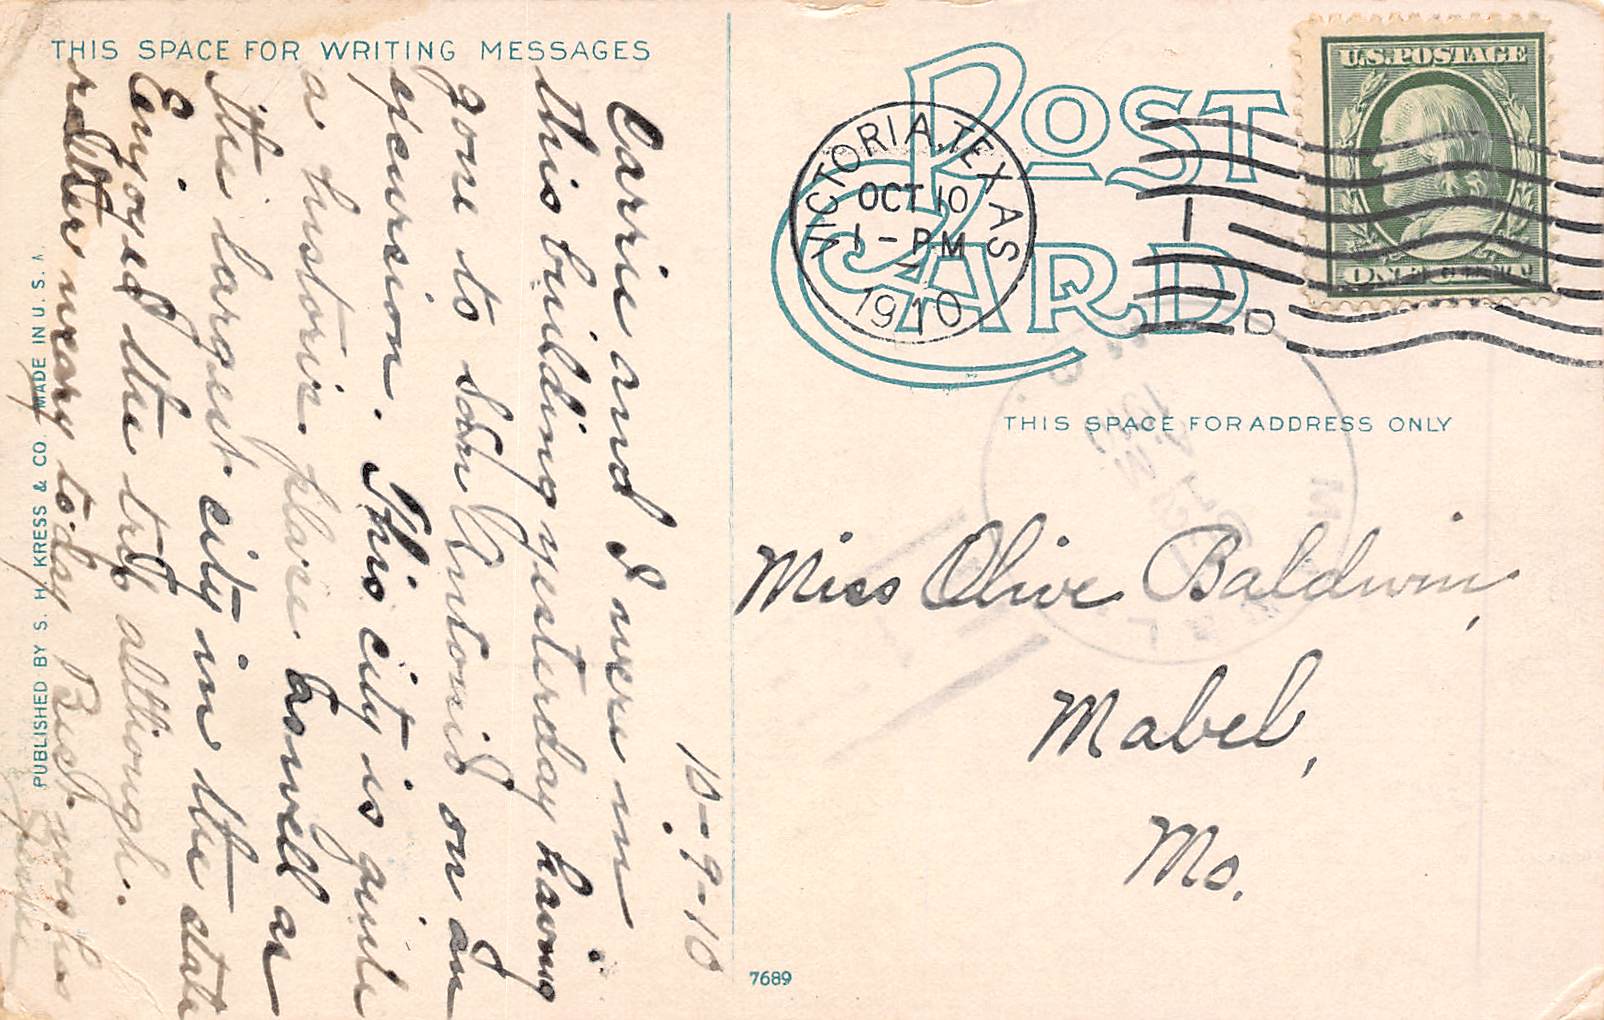 THIS SPACE FOR WRITING MESSAGES
10-9-10
Carrie and I were in
this building yesterday having
gone to San Antonio on an
excursion. This city is quite
a historic place as well as
the largest city in the state
Enjoyed the trip although
rather weary today Best wishes
PUBLISHED BY S. H. KRESS & CO. MADE IN U.S.A.
POST CARD
VICTORIA, TEXAS
OCT 10
1-PM
1910
U.S.POSTAGE
ONE CENT
THIS SPACE FOR ADDRESS ONLY
Miss Olive Baldwin,
Mabel,
Mo.
7689